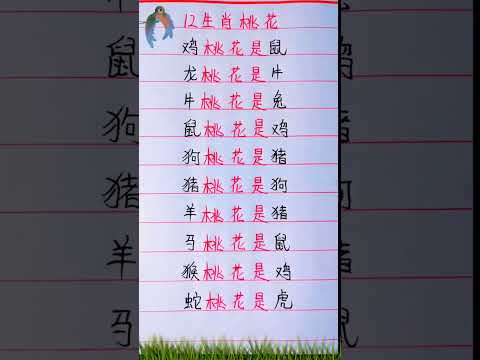 12生肖桃花
鸡桃花是鼠
龙桃花是牛
牛桃花是兔
鼠桃花是鸡
狗桃花是猪
猪桃花是狗
羊桃花是猪
马桃花是鼠
猴桃花是鸡
蛇桃花是虎